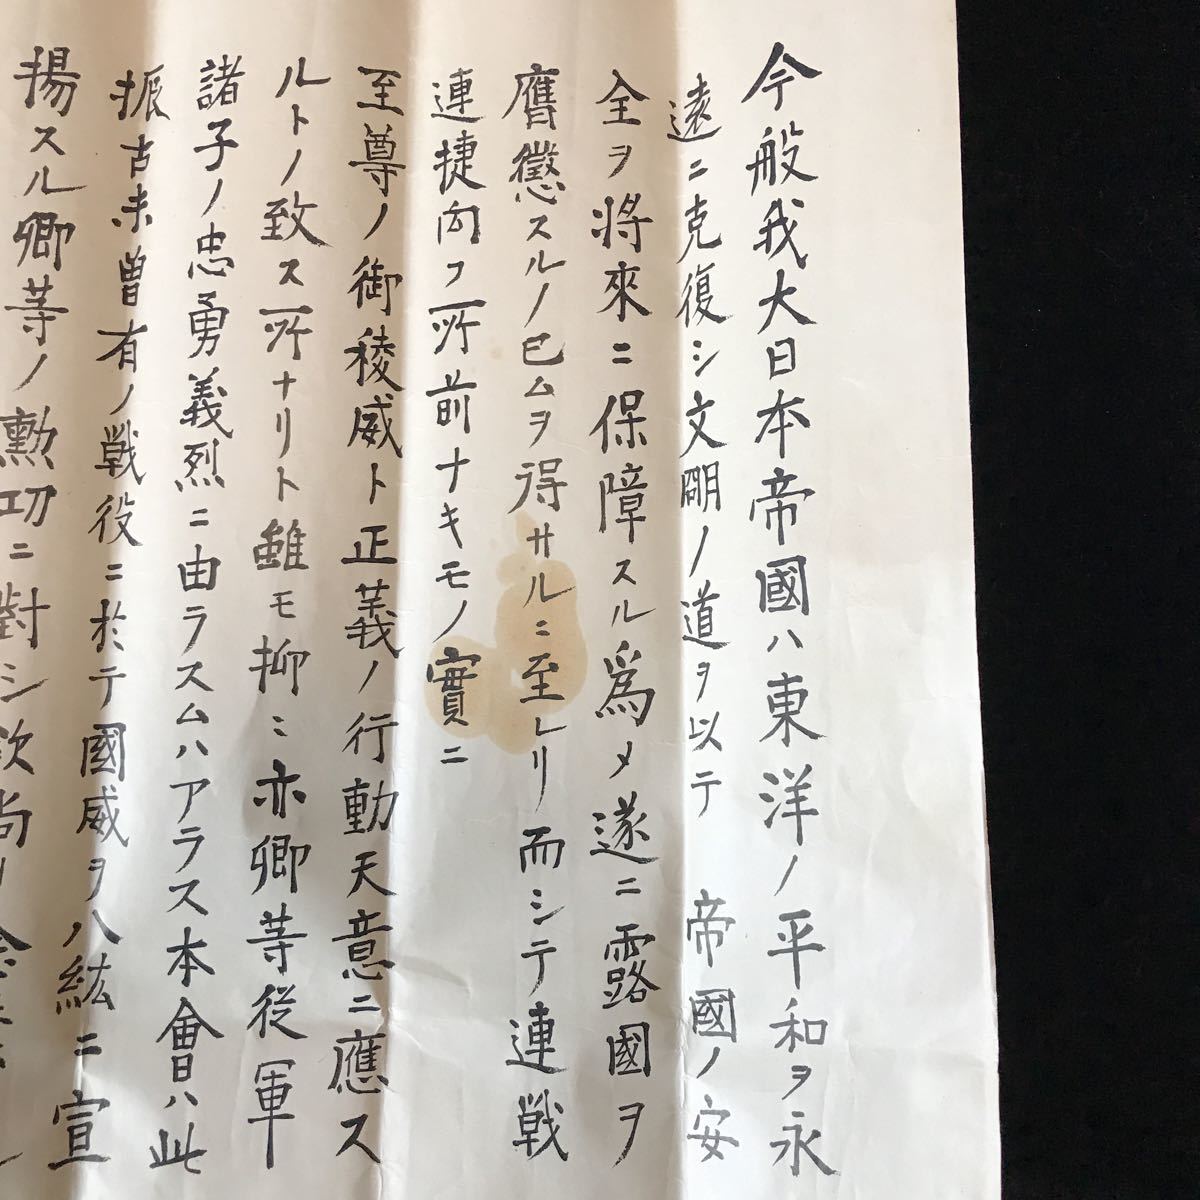 今般我大日本帝國ハ東洋ノ平和ヲ永
遠ニ克復シ文明ノ道ヲ以テ帝國ノ安
全ヲ將來ニ保障スル爲メ遂ニ露國ヲ
膺懲スルノ已ムヲ得サルニ至レリ而シテ連戦
連捷向フ所前ナキモノ實ニ
至尊ノ御稜威ト正義ノ行動天意ニ應ス
ルトノ致ス所ナリト雖モ抑ミ亦卿等従軍
諸子ノ忠勇義烈ニ由ラスムハアラス本會ハ此
振古未曽有ノ戦役ニ於テ國威ヲ八紘ニ宣
揚スル卿等ノ勲功ニ對シ欽尚